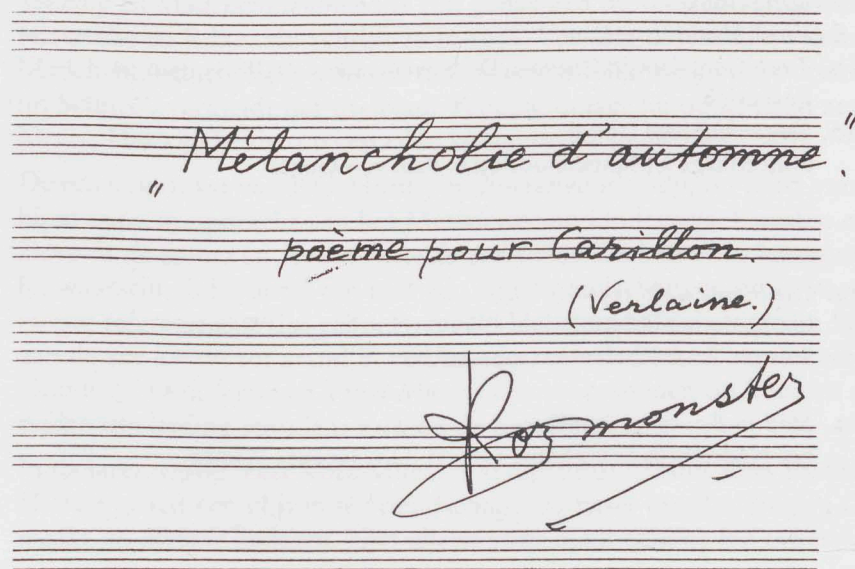 "Mélancholie d'automne."
poème pour Carillon.
(Verlaine.)